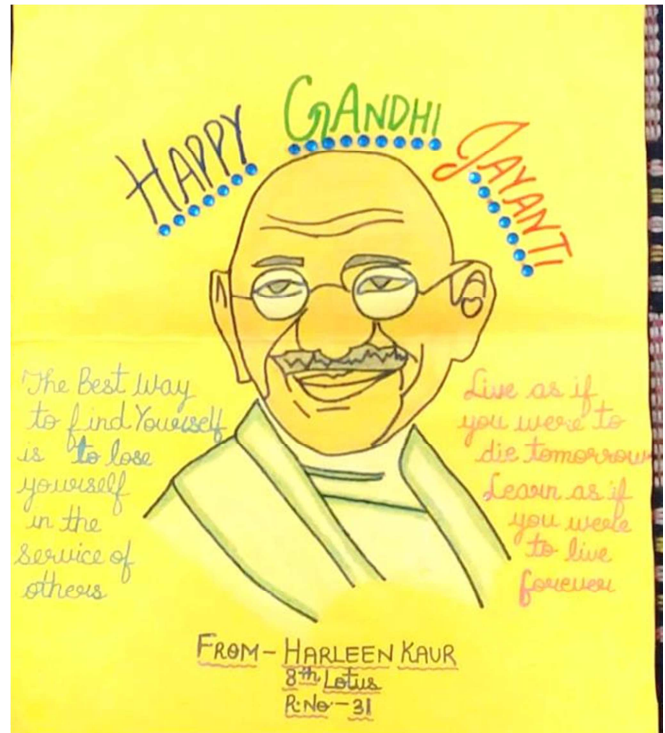 HAPPY GANDHI JAYANTI
The Best Way
to find Yourself
is to lose
yourself
in the
service of
others
Live as if
you were to
die tomorrow
Learn as if
you were
to live
forever
FROM - HARLEEN KAUR
8th Lotus
R.No - 31